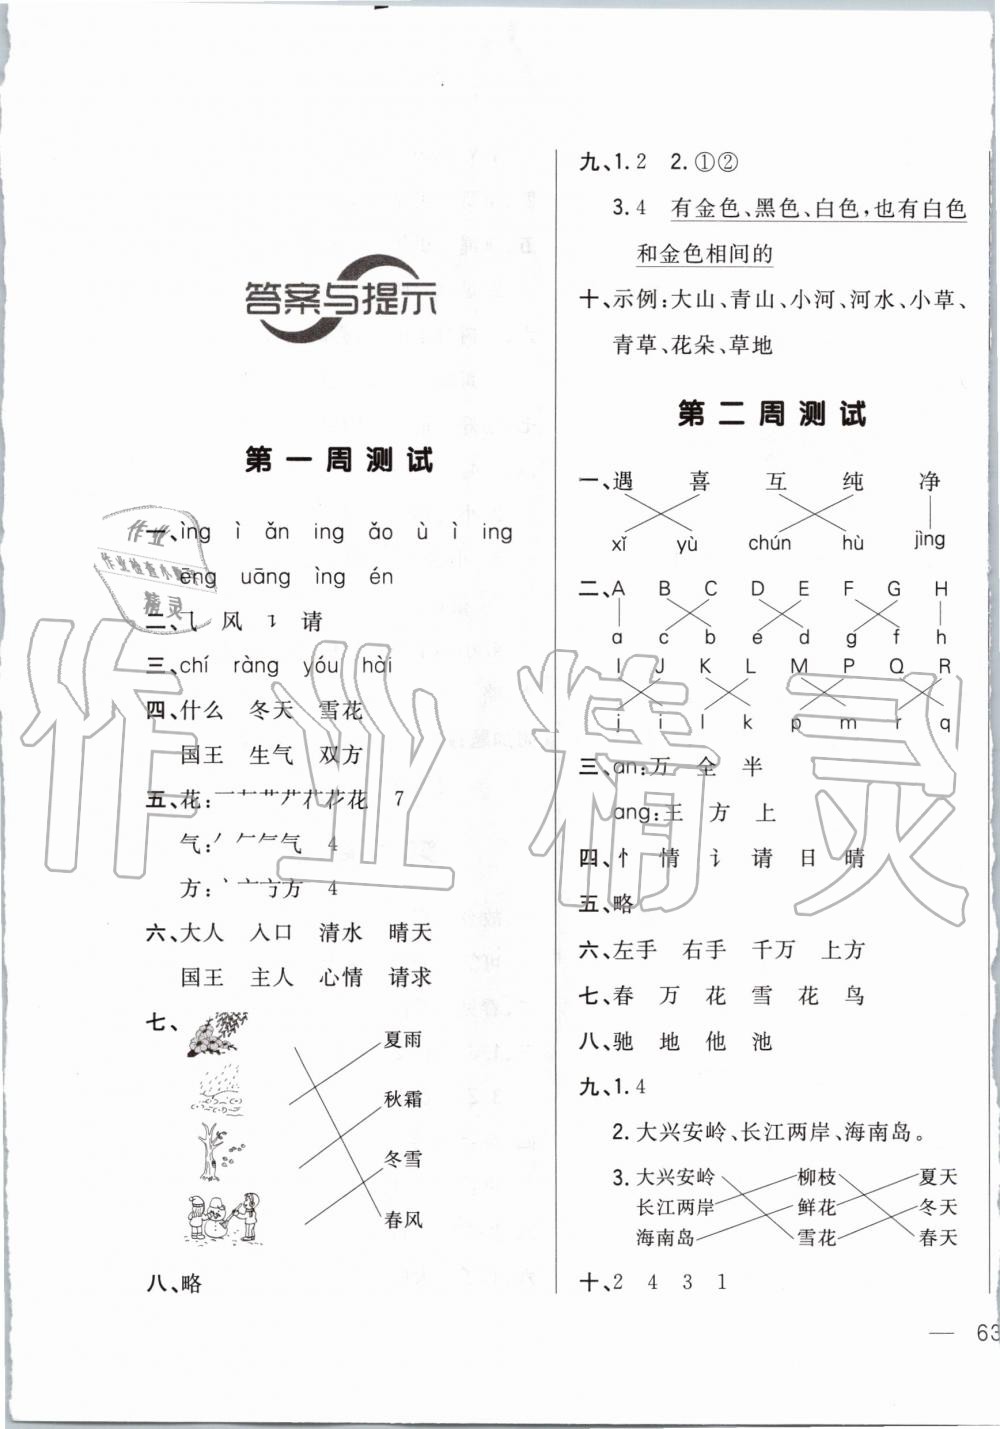 答案与提示
第一周测试
一、ìng ì ǎn ing ǎo ù ì ing
ēng uāng ìng én
二、⺄ 风 讠 请
三、chí ràng yóu hài
四、什么 冬天 雪花
国王 生气 双方
五、花: 7
气: 4
方: 4
六、大人 入口 清水 晴天
国王 主人 心情 请求
七、
夏雨
秋霜
冬雪
春风
八、略
九、1. 2 2. ①②
3. 4 有金色、黑色、白色,也有白色
和金色相间的
十、示例:大山、青山、小河、河水、小草、
青草、花朵、草地
第二周测试
一、遇 喜 互 纯 净
xǐ yù chún hù jìng
二、A B C D E F G H
a c b e d g f h
I J K L M P Q R
j i l k p m r q
三、an:万 全 半
ang:王 方 上
四、忄 情 讠 请 日 晴
五、略
六、左手 右手 千万 上方
七、春 万 花 雪 花 鸟
八、驰 地 他 池
九、1. 4
2. 大兴安岭、长江两岸、海南岛。
3. 大兴安岭 柳枝 夏天
长江两岸 鲜花 冬天
海南岛 雪花 春天
十、2 4 3 1
— 63
作业精灵
作业
作业检查小
精灵